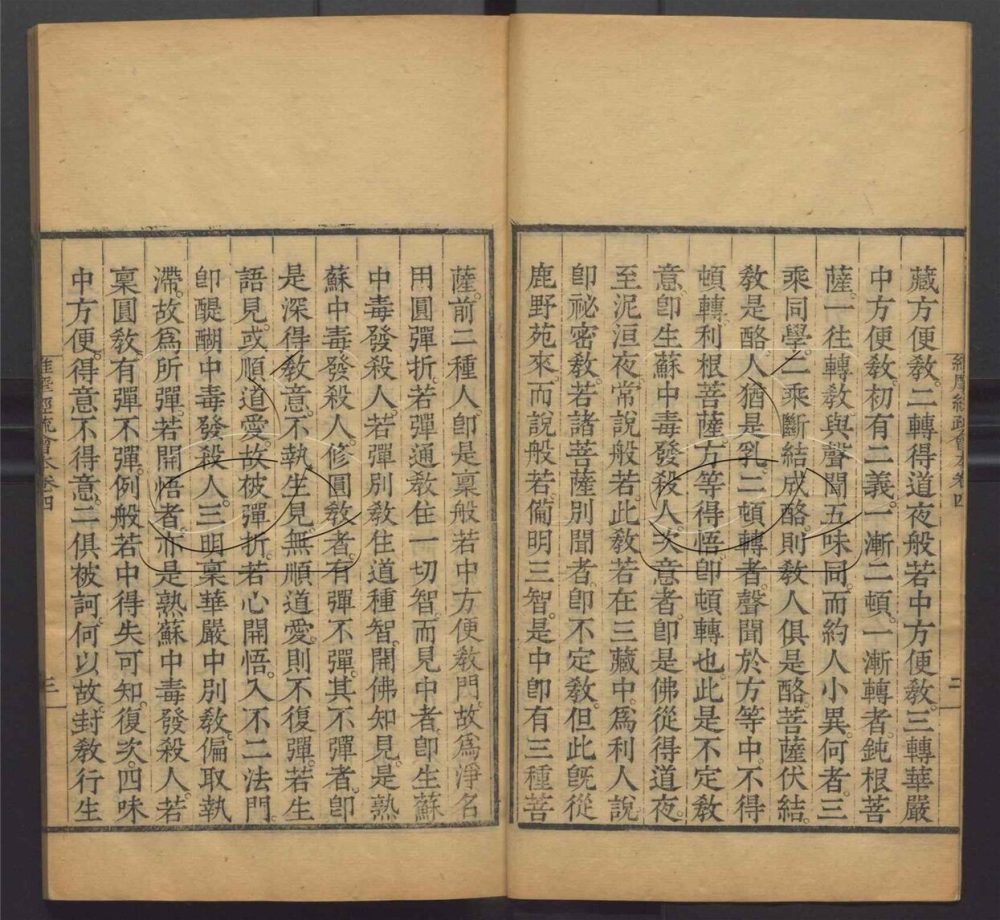 維摩經疏會本卷四
二
藏方便教。二轉得道夜般若中方便教。三轉華嚴
中方便教。初有二義。一漸二頓。一漸轉者。鈍根菩
薩。一往轉教與聲聞五味同。而約人小異。何者。三
乘同學。二乘斷結成酪。則教人俱是酪。菩薩伏結。
教是酪。人猶是乳。二頓轉者。聲聞於方等中。不得
頓轉。利根菩薩方等得悟。卽頓轉也。此是不定教
意。卽生蘇中毒發殺人。次意者。卽是佛從得道夜。
至泥洹夜。常說般若。此教若在三藏中。爲利人說。
卽祕密教。若諸菩薩別聞者。卽不定教。但此旣從
鹿野苑來。而說般若。備明三智。是中卽有三種菩
薩。前二種人。卽是稟般若中方便教門。故爲淨名
用圓彈折。若彈通教住一切智。而見中者。卽生蘇
中毒發殺人。若彈別教住道種智。開佛知見。是熟
蘇中毒發殺人。修圓教者。有彈不彈。其不彈者。卽
是深得教意。不執生見。無順道愛。則不復彈。若生
語見。或順道愛。故被彈折。若心開悟。入不二法門。
卽醍醐中毒發殺人。三明稟華嚴中別教。偏取執
滯。故爲所彈。若開悟者。亦是熟蘇中毒發殺人。若
稟圓教。有彈不彈。例般若中得失可知。復次。四味
中方便。得意不得意。二俱被訶。何以故。封教行生
維摩經疏會本卷四
三